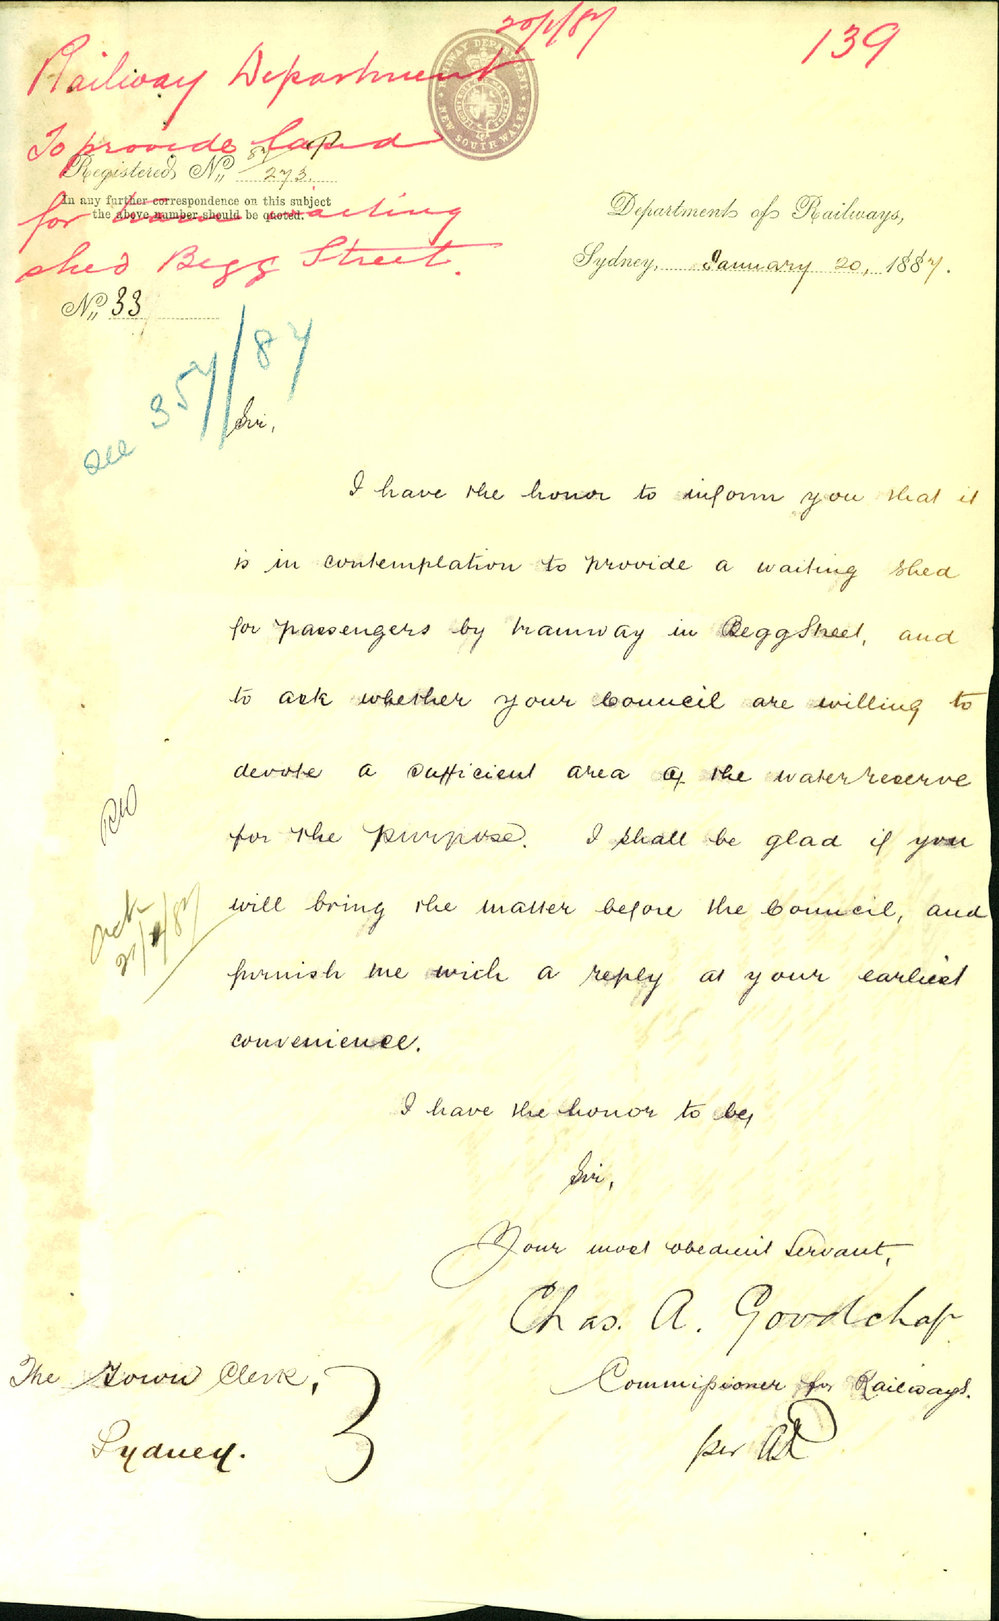 20/1/87
139
Railway Department
RAILWAY DEPARTMENT
NEW SOUTH WALES
To provide land
Registered No. 87/273
In any further correspondence on this subject
the above number should be quoted.
for tram waiting
shed Begg Street.
No. 33
Department of Railways,
Sydney, January 20, 1887.
see 357/87
Sir,
I have the honor to inform you that it
is in contemplation to provide a waiting shed
for passengers by tramway in Begg Street, and
to ask whether your Council are willing to
devote a sufficient area of the water reserve
for the purpose. I shall be glad if you
will bring the matter before the Council, and
furnish me with a reply at your earliest
convenience.
I have the honor to be,
Sir,
Your most obedient Servant,
Chas. A. Goodchap
Commissioner for Railways.
per
The Town Clerk,
Sydney.